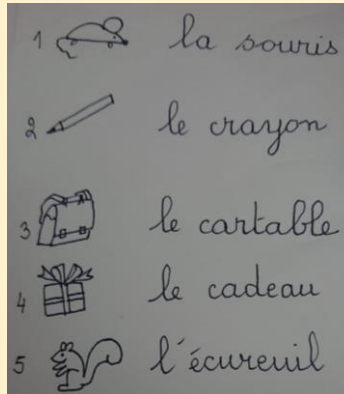 1 la souris
2 le crayon
3 le cartable
4 le cadeau
5 l'écureuil